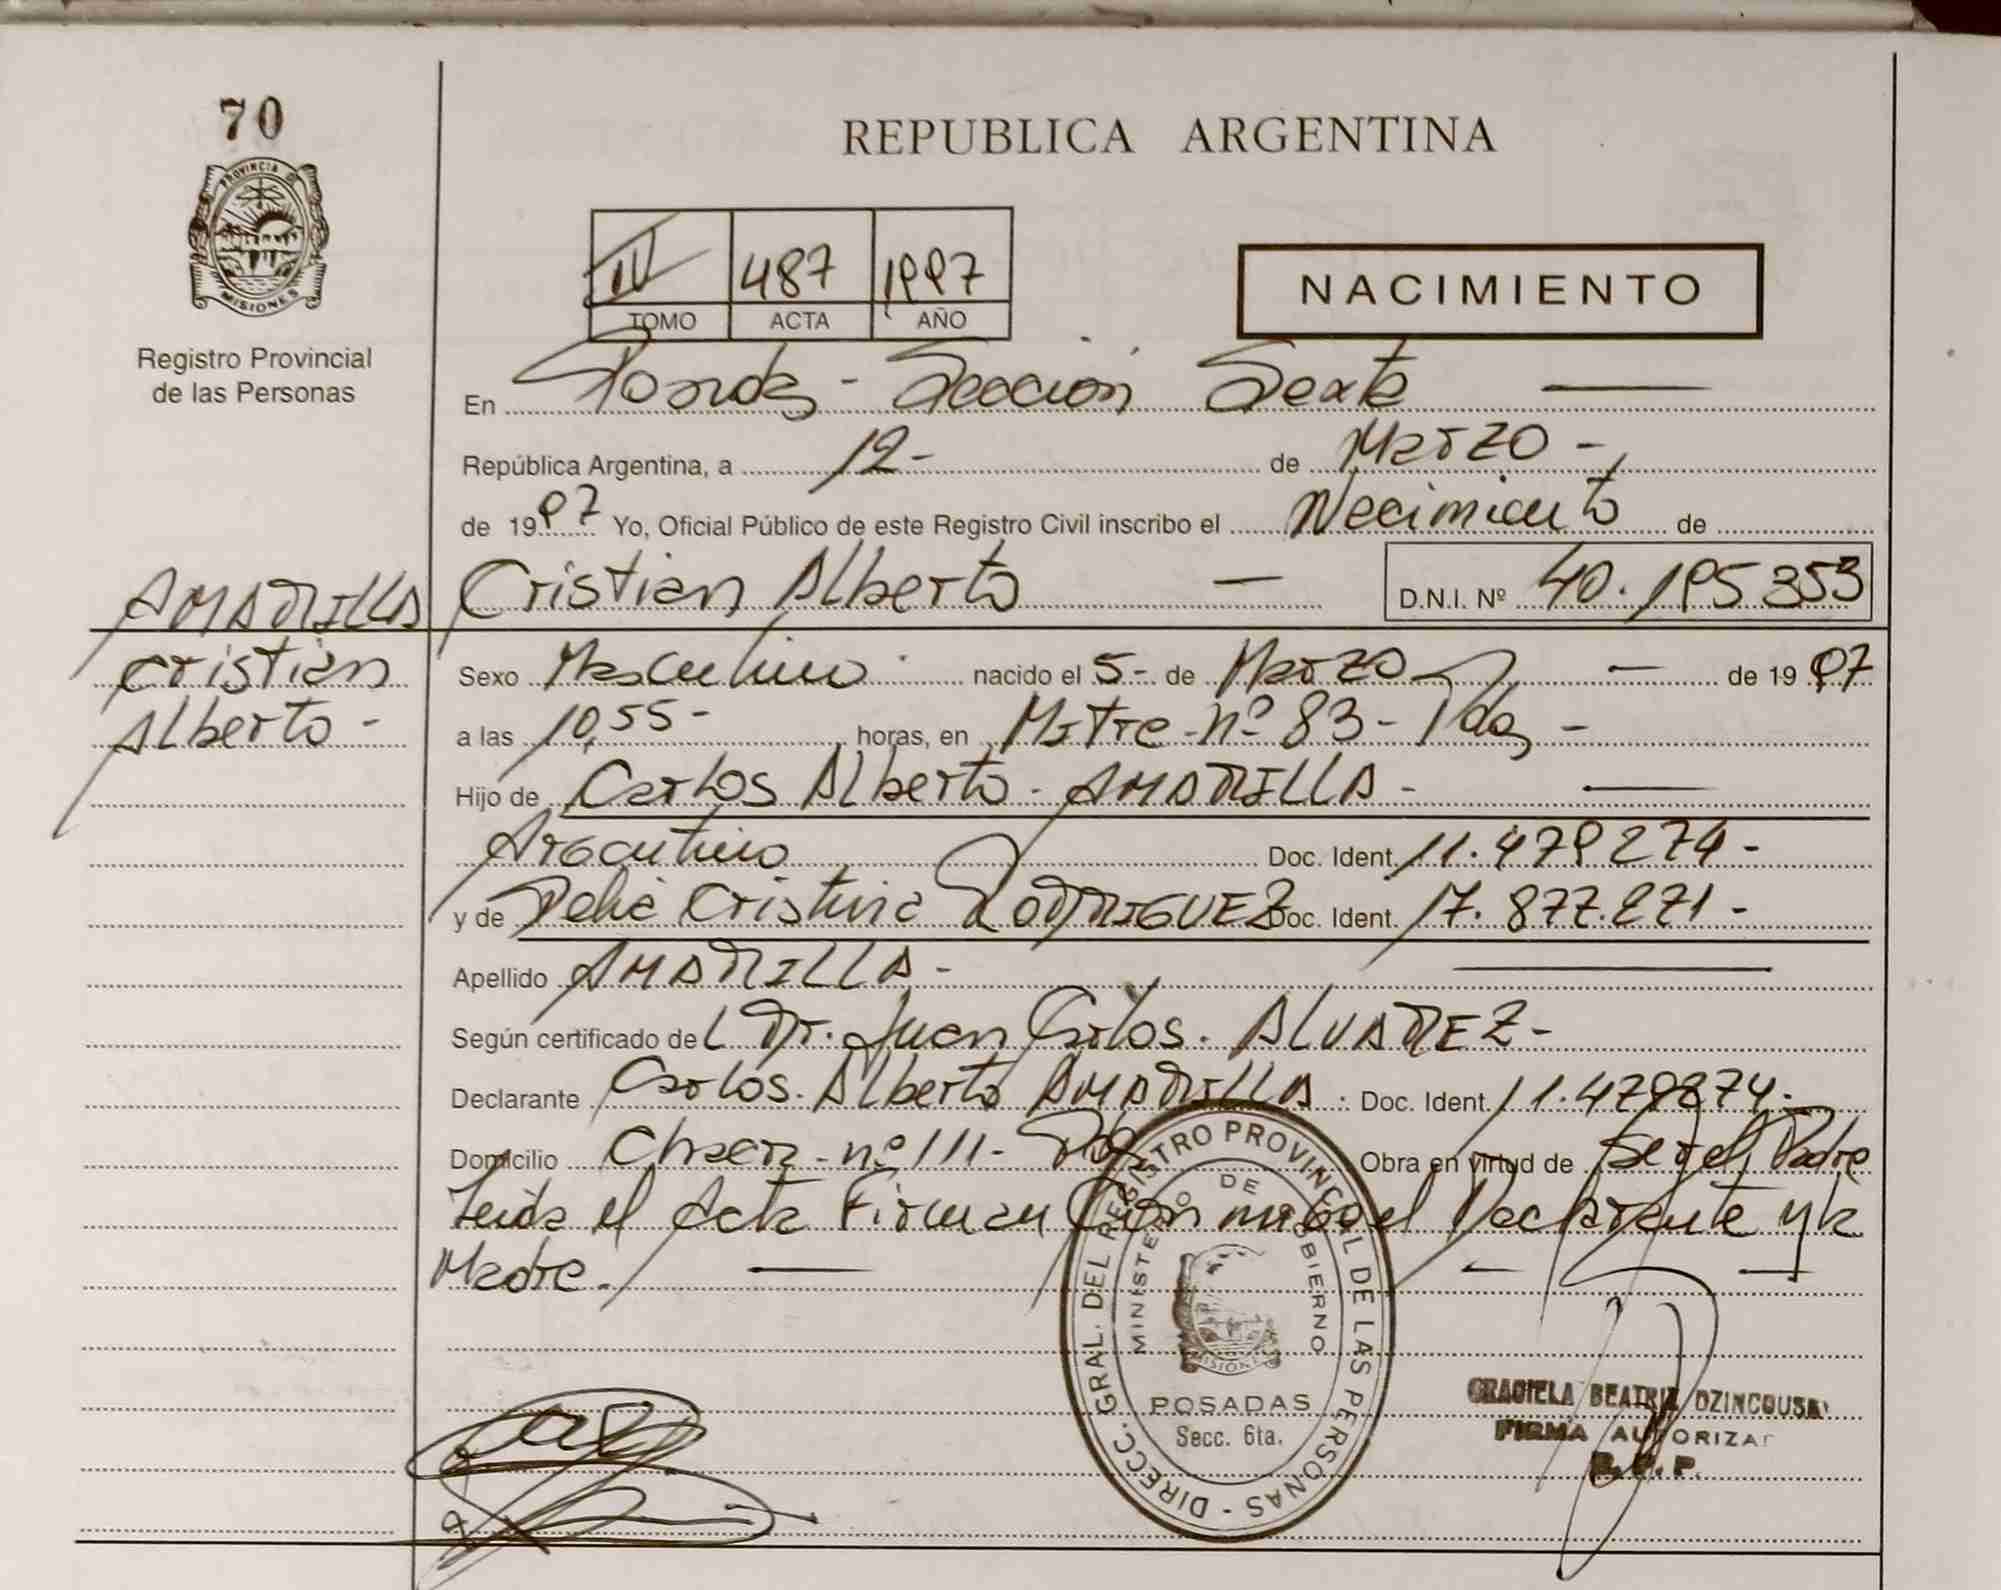 70
PROVINCIA DE
MISIONES
Registro Provincial
de las Personas
REPUBLICA ARGENTINA
IV 487 1997
TOMO ACTA AÑO
NACIMIENTO
En Posadas - Sección Sexta
República Argentina, a 12 - de Marzo -
de 1997 Yo, Oficial Público de este Registro Civil inscribo el Nacimiento de
AMARILLA Cristian Alberto D.N.I. Nº 40.195353
Cristian
Alberto -
Sexo Masculino nacido el 5 - de Marzo de 1997
a las 10,55 - horas, en Mitre - nº 83 - Pdas -
Hijo de Carlos Alberto - AMARILLA -
Argentino Doc. Ident. 11.479274 -
y de Delia Cristina RODRIGUEZ Doc. Ident. 17.877.271 -
Apellido AMARILLA -
Según certificado del Dr. Juan Carlos. ALVAREZ -
Declarante Carlos. Alberto AMARILLA. Doc. Ident. 11.479874.
Domicilio nº 111 - Obra en virtud de Ser el Padre
Leida el Acta Firman Con migo el Declarante y la
Madre.
DIRECC. GRAL. DEL REGISTRO PROVINCIAL DE LAS PERSONAS -
MINISTERIO DE GOBIERNO
MISIONES
POSADAS
Secc. 6ta.
GRACIELA BEATRIZ
FIRMA AUTORIZA
R.P.P.